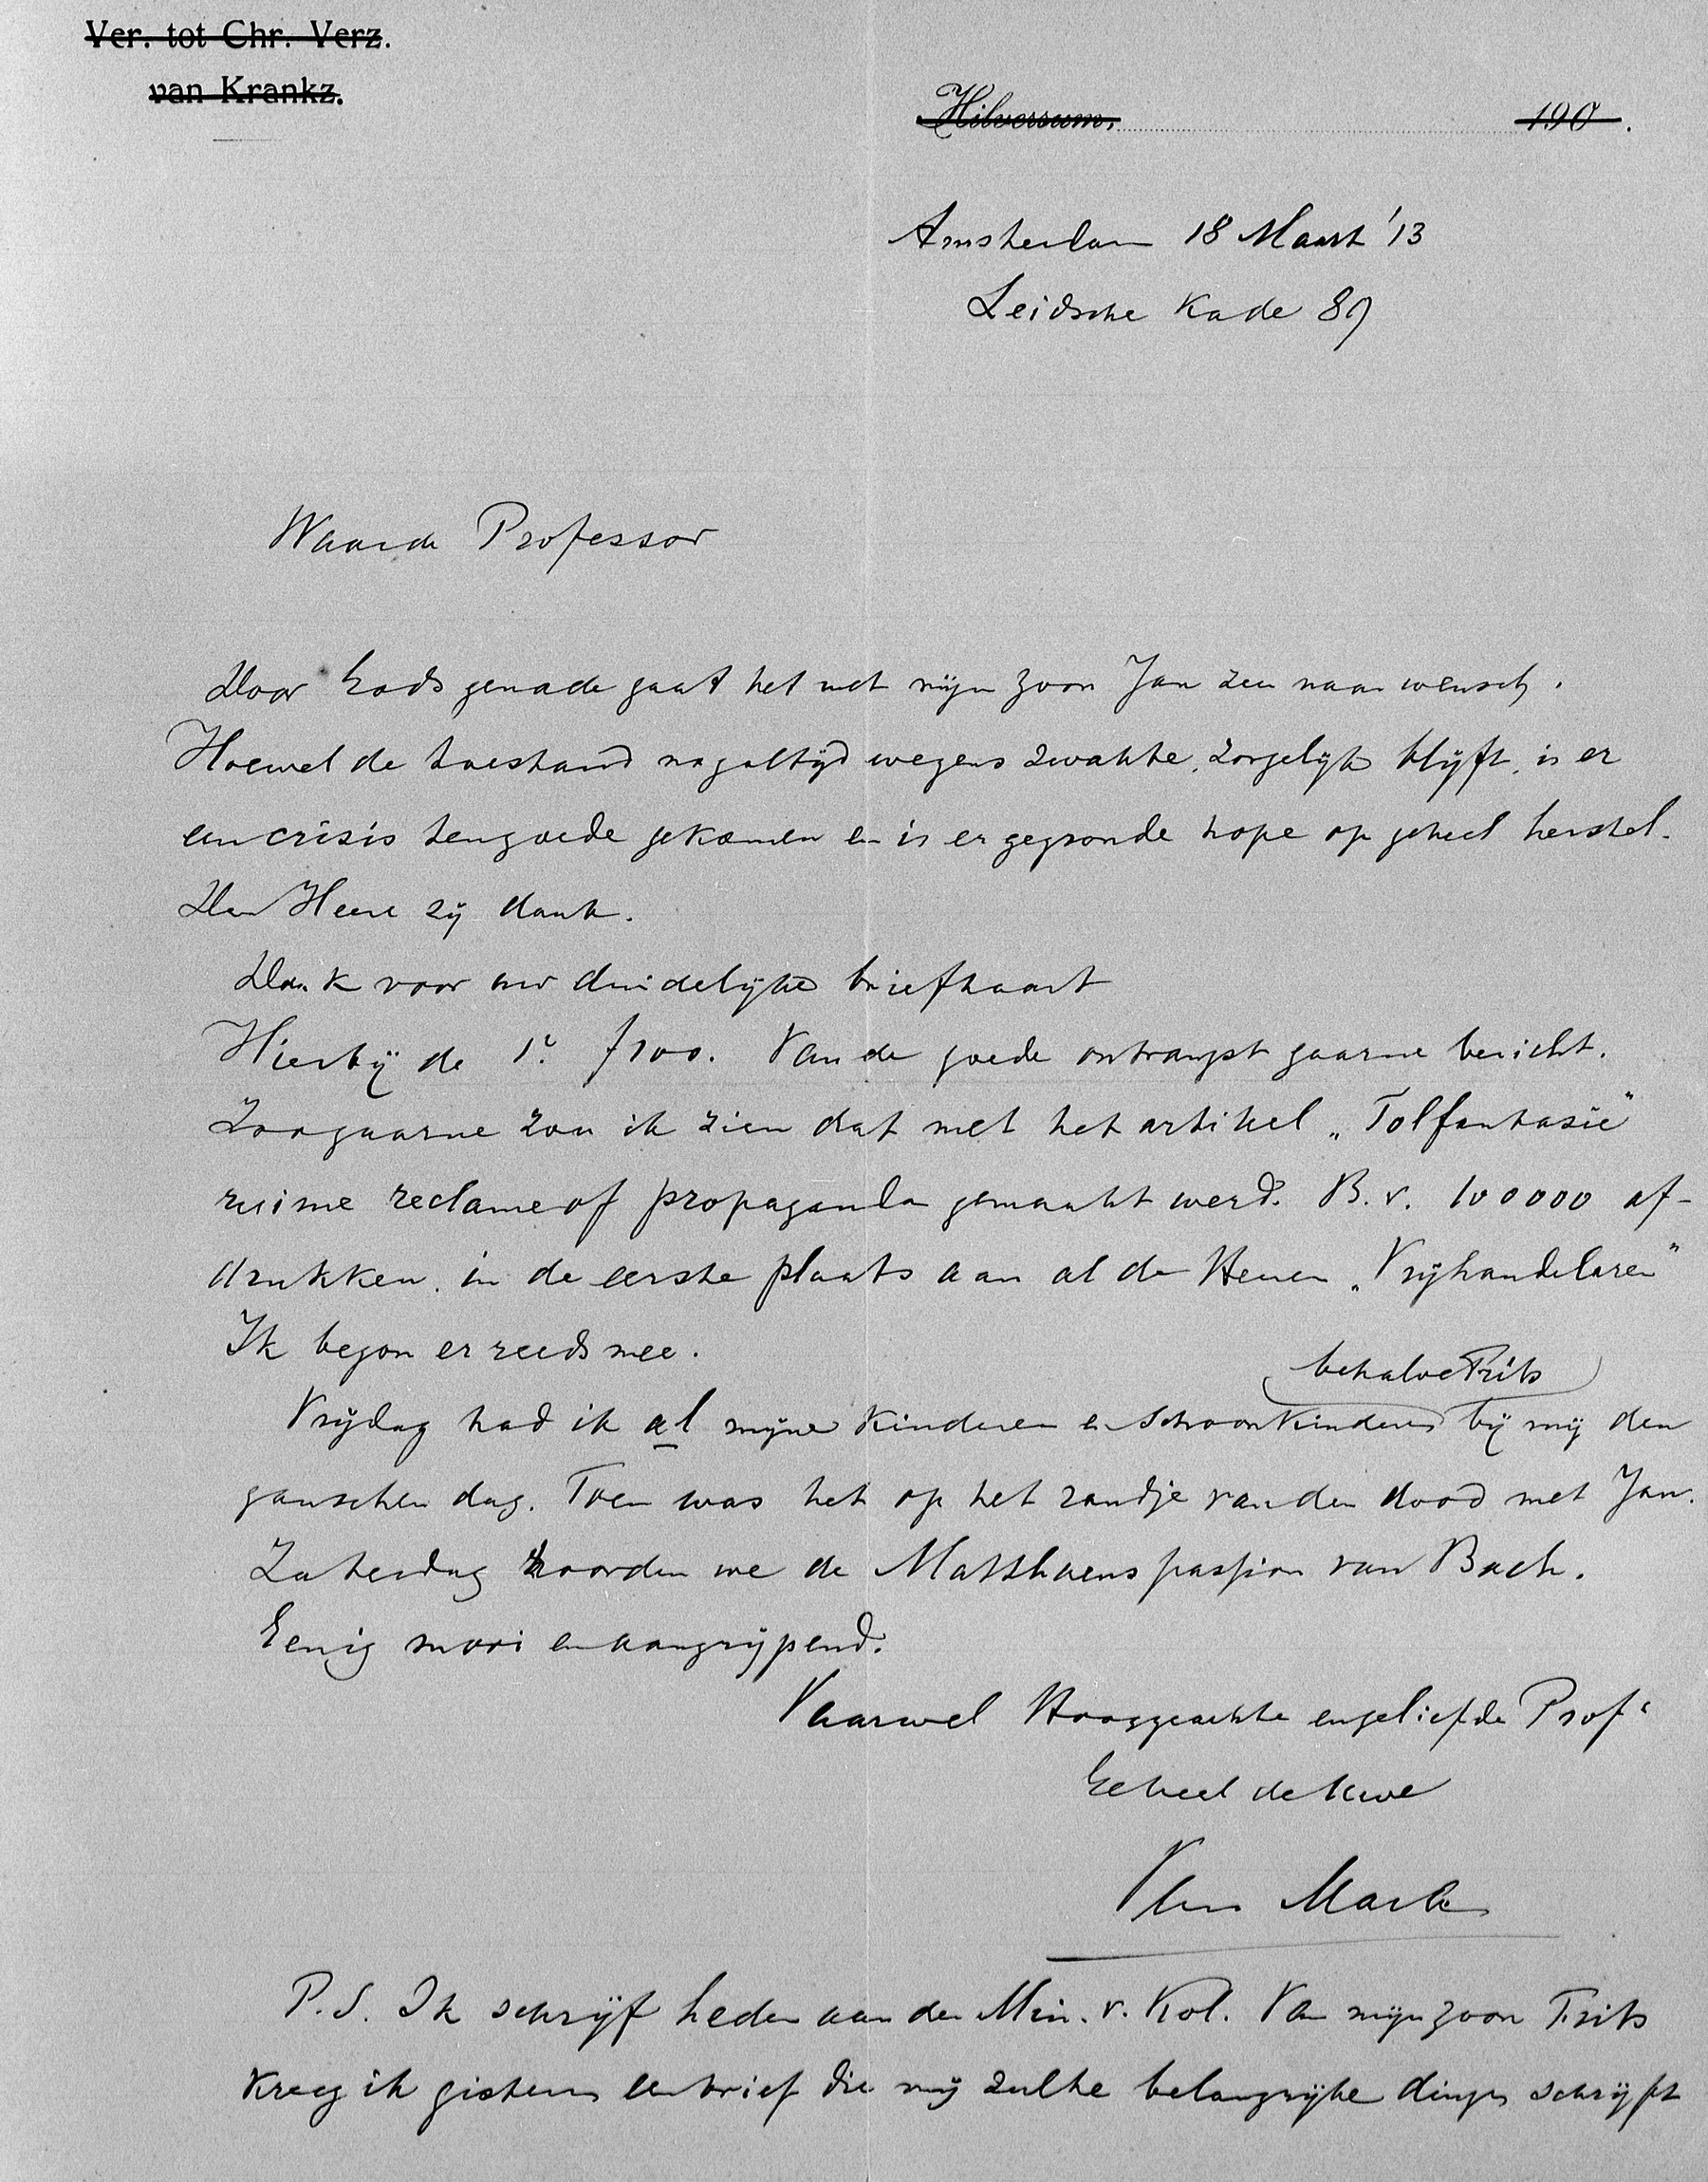 Ver. tot Chr. Verz.
van Krankz.
Hilversum, 190 .
Amsterdam 18 Maart '13
Leidsche Kade 89
Waarde Professor
Door Gods genade gaat het met mijn zoon Jan zeer naar wensch.
Hoewel de toestand nog altijd wegens zwakte, zorgelijk blijft, is er
een crisis ten goede gekomen en is er gegronde hope op geheel herstel.
Den Heere zij dank.
Dank voor uw duidelijke briefkaart
Hierbij de 1e f100. Van de goede ontvangst gaarne bericht.
Zoo gaarne zou ik zien dat met het artikel „Tolfantasie"
ruime reclame of propaganda gemaakt werd. B.v. 100000 af-
drukken. in de eerste plaats aan al de Heeren „Vrijhandelaren"
Ik begon er reeds mee.
behalve Frits
Vrijdag had ik al mijne kinderen en schoonkinderen bij mij den
ganschen dag. Toen was het op het randje van den dood met Jan.
Zaterdag hoorden we de Matthaeus passion van Bach.
Eenig mooi en aangrijpend.
Vaarwel Hooggeachte en geliefde Prof.
Geheel de Uwe
P.S. Ik schrijf heden aan den Min. v. Kol. Van mijn zoon Frits
kreeg ik gisteren een brief die mij zulke belangrijke dingen schrijft